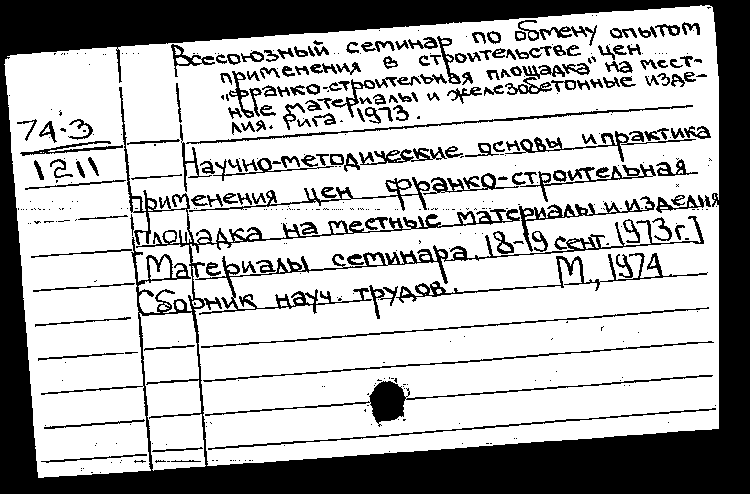 Всесоюзный семинар по обмену опытом
применения в строительстве цен
"франко-строительная площадка" на мест-
ные материалы и железобетонные изде-
лия. Рига. 1973.
74-3
1211
Научно-методические основы и практика
применения цен франко-строительная
площадка на местные материалы и изделия
[Материалы семинара. 18-19 сент. 1973 г.]
Сборник науч. трудов. М., 1974.